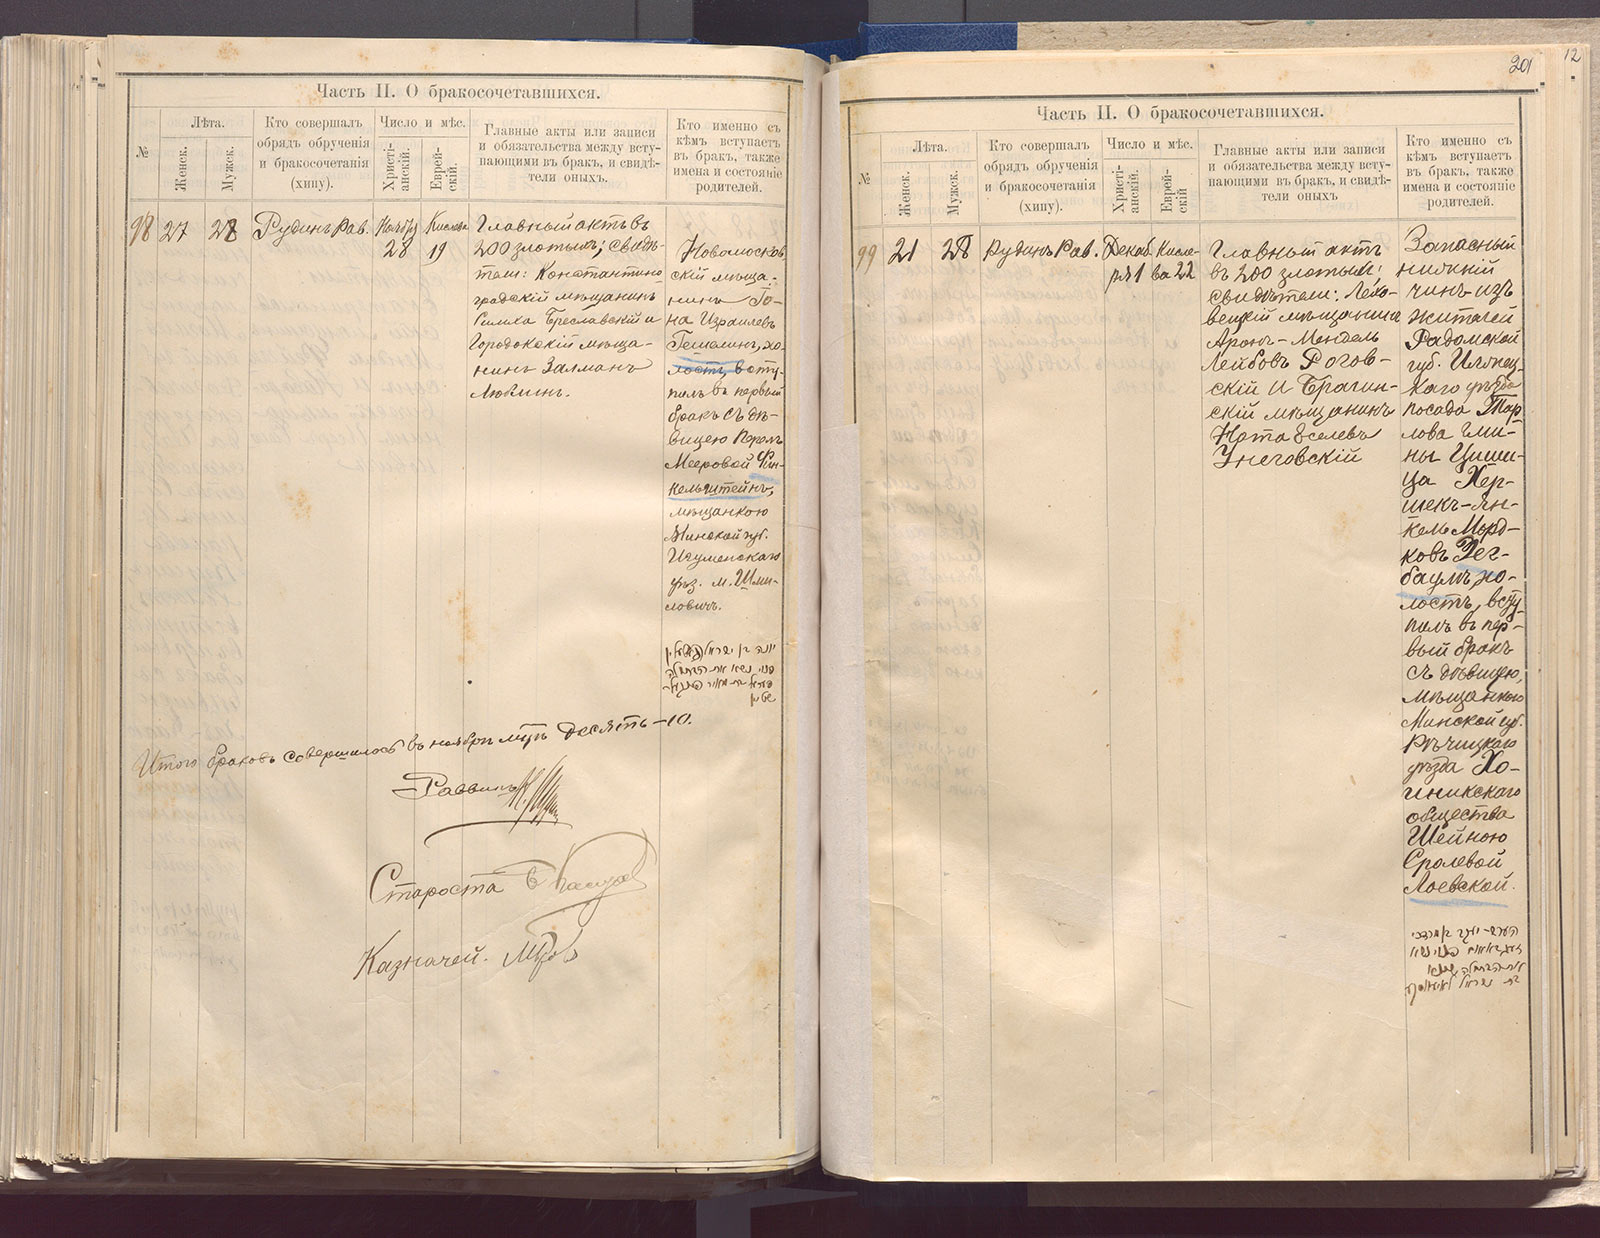 Часть II. О бракосочетавшихся.
№
Лѣта.
Женск.
Мужск.
Кто совершалъ
обрядъ обрученія
и бракосочетанія
(хипу).
Число и мѣс.
Христі-
анскій.
Еврей-
скій.
Главные акты или записи
и обязательства между всту-
пающими въ бракъ, и свидѣ-
тели оныхъ.
Кто именно съ
кѣмъ вступаетъ
въ бракъ, также
имена и состояніе
родителей.
98
27
28
Рудинъ Рав.
Ноября
28
Кислева
19
Главный актъ въ
200 злотыхъ; свидѣ-
тели: Константино
градскій мѣщанинъ
Симха Бреславскій и
Городокскій мѣща-
нинъ Залманъ
Любкинъ.
Новомосков
скій мѣща-
нинъ Іо-
на Израилевъ
хо-
лостъ, всту-
пилъ въ первый
бракъ съ дѣ-
вицею Перль
Мееровой Фин-
кельштейнъ,
мѣщанкою
Минской губ.
Игуменскаго
уѣз. м. Шми-
ловичъ.
יונה בן ישראל
Итого браковъ совершилось въ ноябрѣ мцѣ десять—10.
Раввинъ
Староста
Казначей.
12
201
Часть II. О бракосочетавшихся.
№
Лѣта.
Женск.
Мужск.
Кто совершалъ
обрядъ обрученія
и бракосочетанія
(хипу).
Число и мѣс.
Христі-
анскій.
Еврей-
скій
Главные акты или записи
и обязательства между всту-
пающими въ бракъ, и свидѣ-
тели оныхъ
Кто именно съ
кѣмъ вступаетъ
въ бракъ, также
имена и состояніе
родителей.
99
21
28
Рудинъ Рав.
Декаб
ря 1
Кисле-
ва 22
Главный актъ
въ 200 злотый;
свидѣтели: Ляхо-
вецкій мѣщанинъ
Аронъ-Мендель
Лейбовъ Рогов-
скій и Брагин-
скій мѣщанинъ
Нота Еселевъ
Унеговскій
Запасный
нижній
чинъ изъ
жителей
Радомской
губ. Илжец-
каго уѣзда
посада Тар
лова гми-
ны Цишица
Хер-
шекъ-Ян-
кель Морд-
ковъ Зег-
баумъ, хо-
лостъ, всту-
пилъ въ пер-
вый бракъ
съ дѣвицею,
мѣщанкою
Минской губ.
Рѣчицкаго
уѣзда Хо-
иникскаго
общества
Шейною
Сролевой
Лоевской.